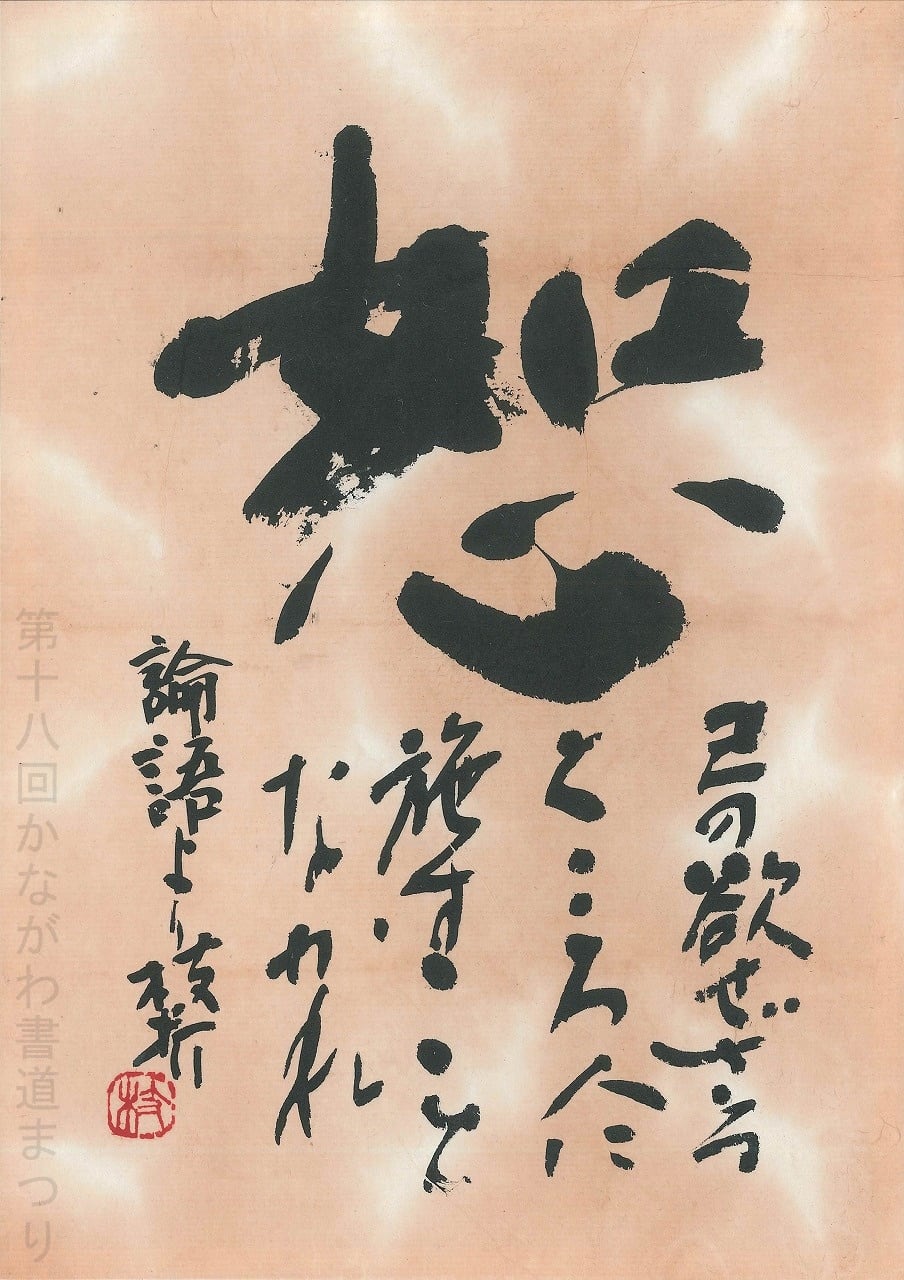 恕
己の欲せざる
ところ人に
施すこと
なかれ
論語より枝折
枝
第十八回かながわ書道まつり